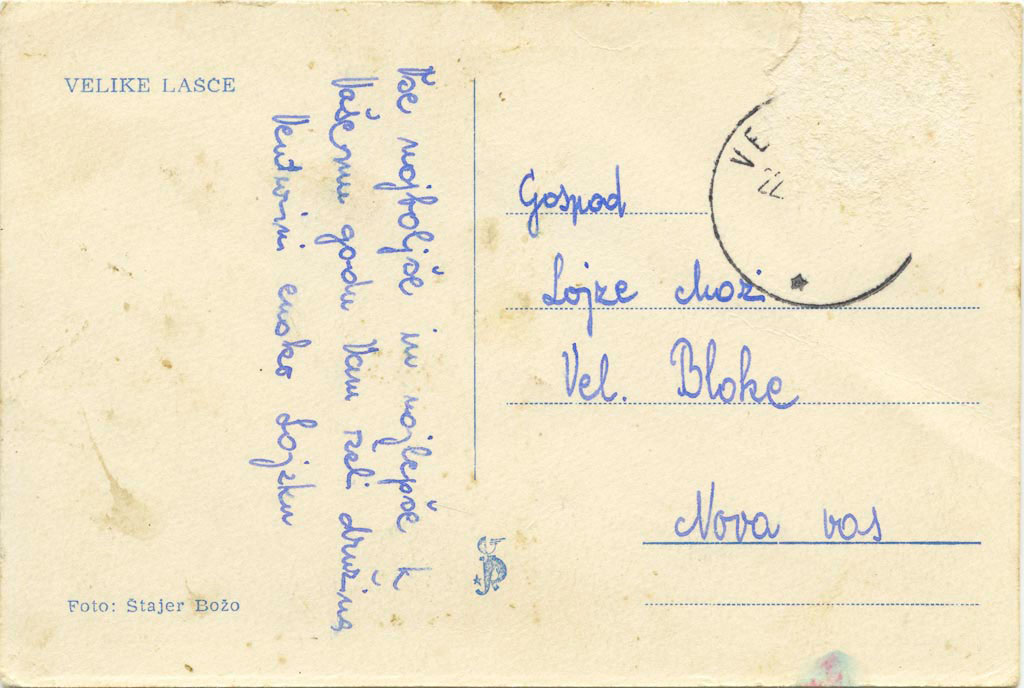 VELIKE LAŠČE
Vse najboljše in najlepše k
Vašemu godu Vam želi družina
Venturini enako Lojzku
Foto: Štajer Božo
VE
22
Gospod
Lojze Mozi
Vel. Bloke
Nova vas